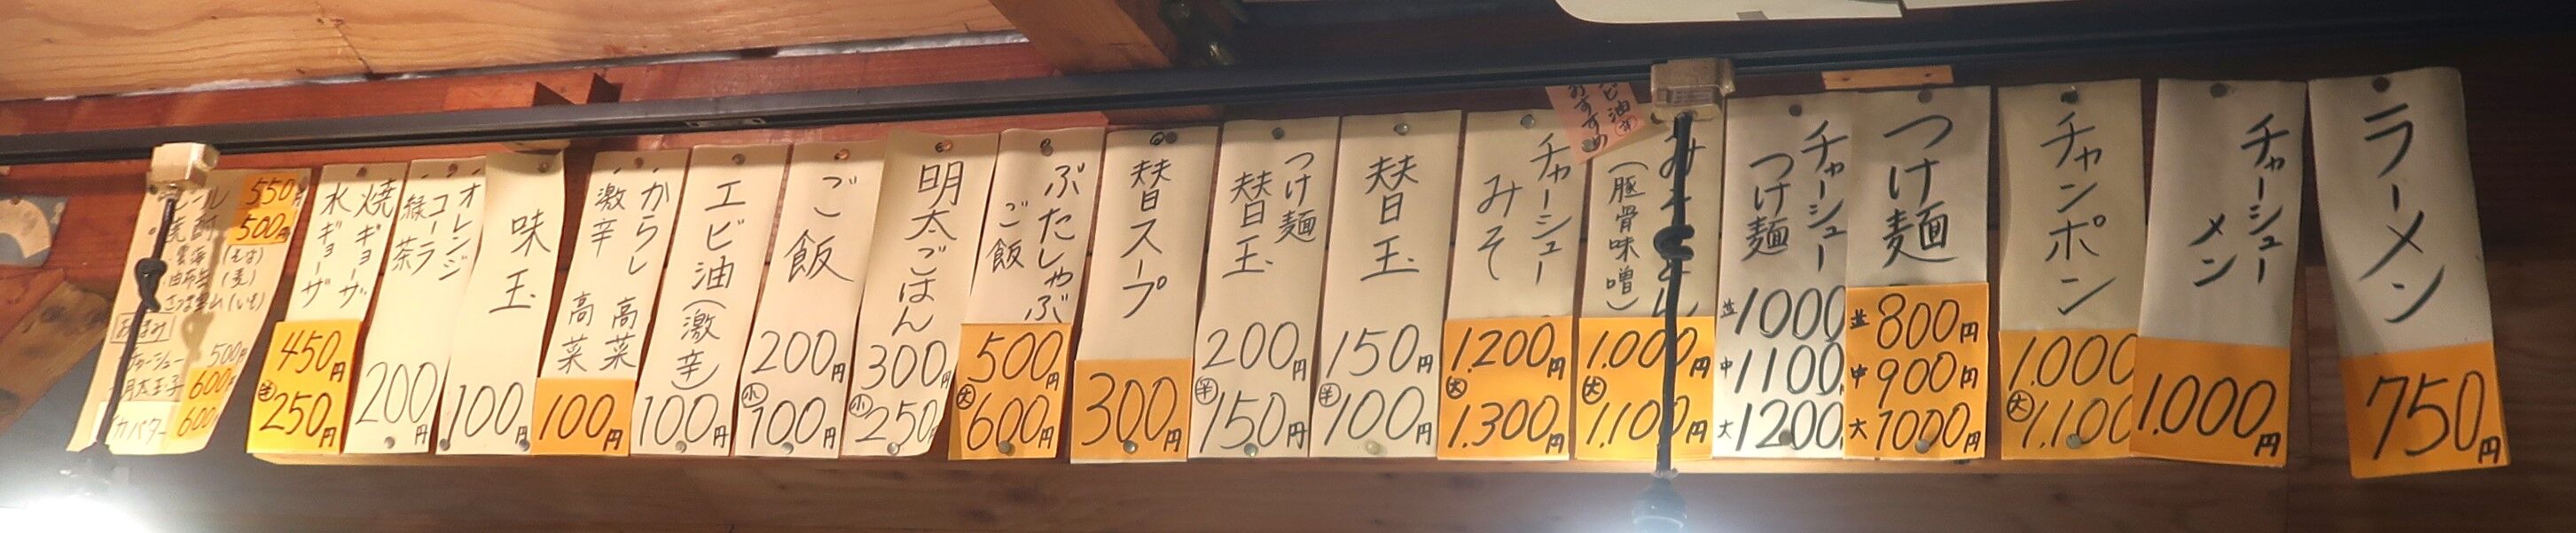 ラーメン
750円
チャーシュー
メン
1.000円
チャンポン
1.000
大 1.100
つけ麺
並 800円
中 900円
大 1000円
チャーシュー
つけ麺
並 1000
中 1100
大 1200
油
おすすめ
(豚骨味噌)
1.000円
大 1.100円
チャーシュー
みそ
1.200円
大 1.300円
替玉
150円
半 100円
つけ麺
替玉
200円
半 150円
替スープ
300円
ぶたしゃぶ
ご飯
500円
大 600円
明太ごはん
300円
小 250円
ご飯
200円
小 100円
エビ油(激辛)
100円
からし 高菜
激辛 高菜
100円
味玉
100円
オレンジ
コーラ
緑茶
200円
焼ギョーザ
水ギョーザ
450円
半 250円
ール 550円
500円
(そば)
(麦)
(いも)
チャーシュー 500円
600円
バター 600